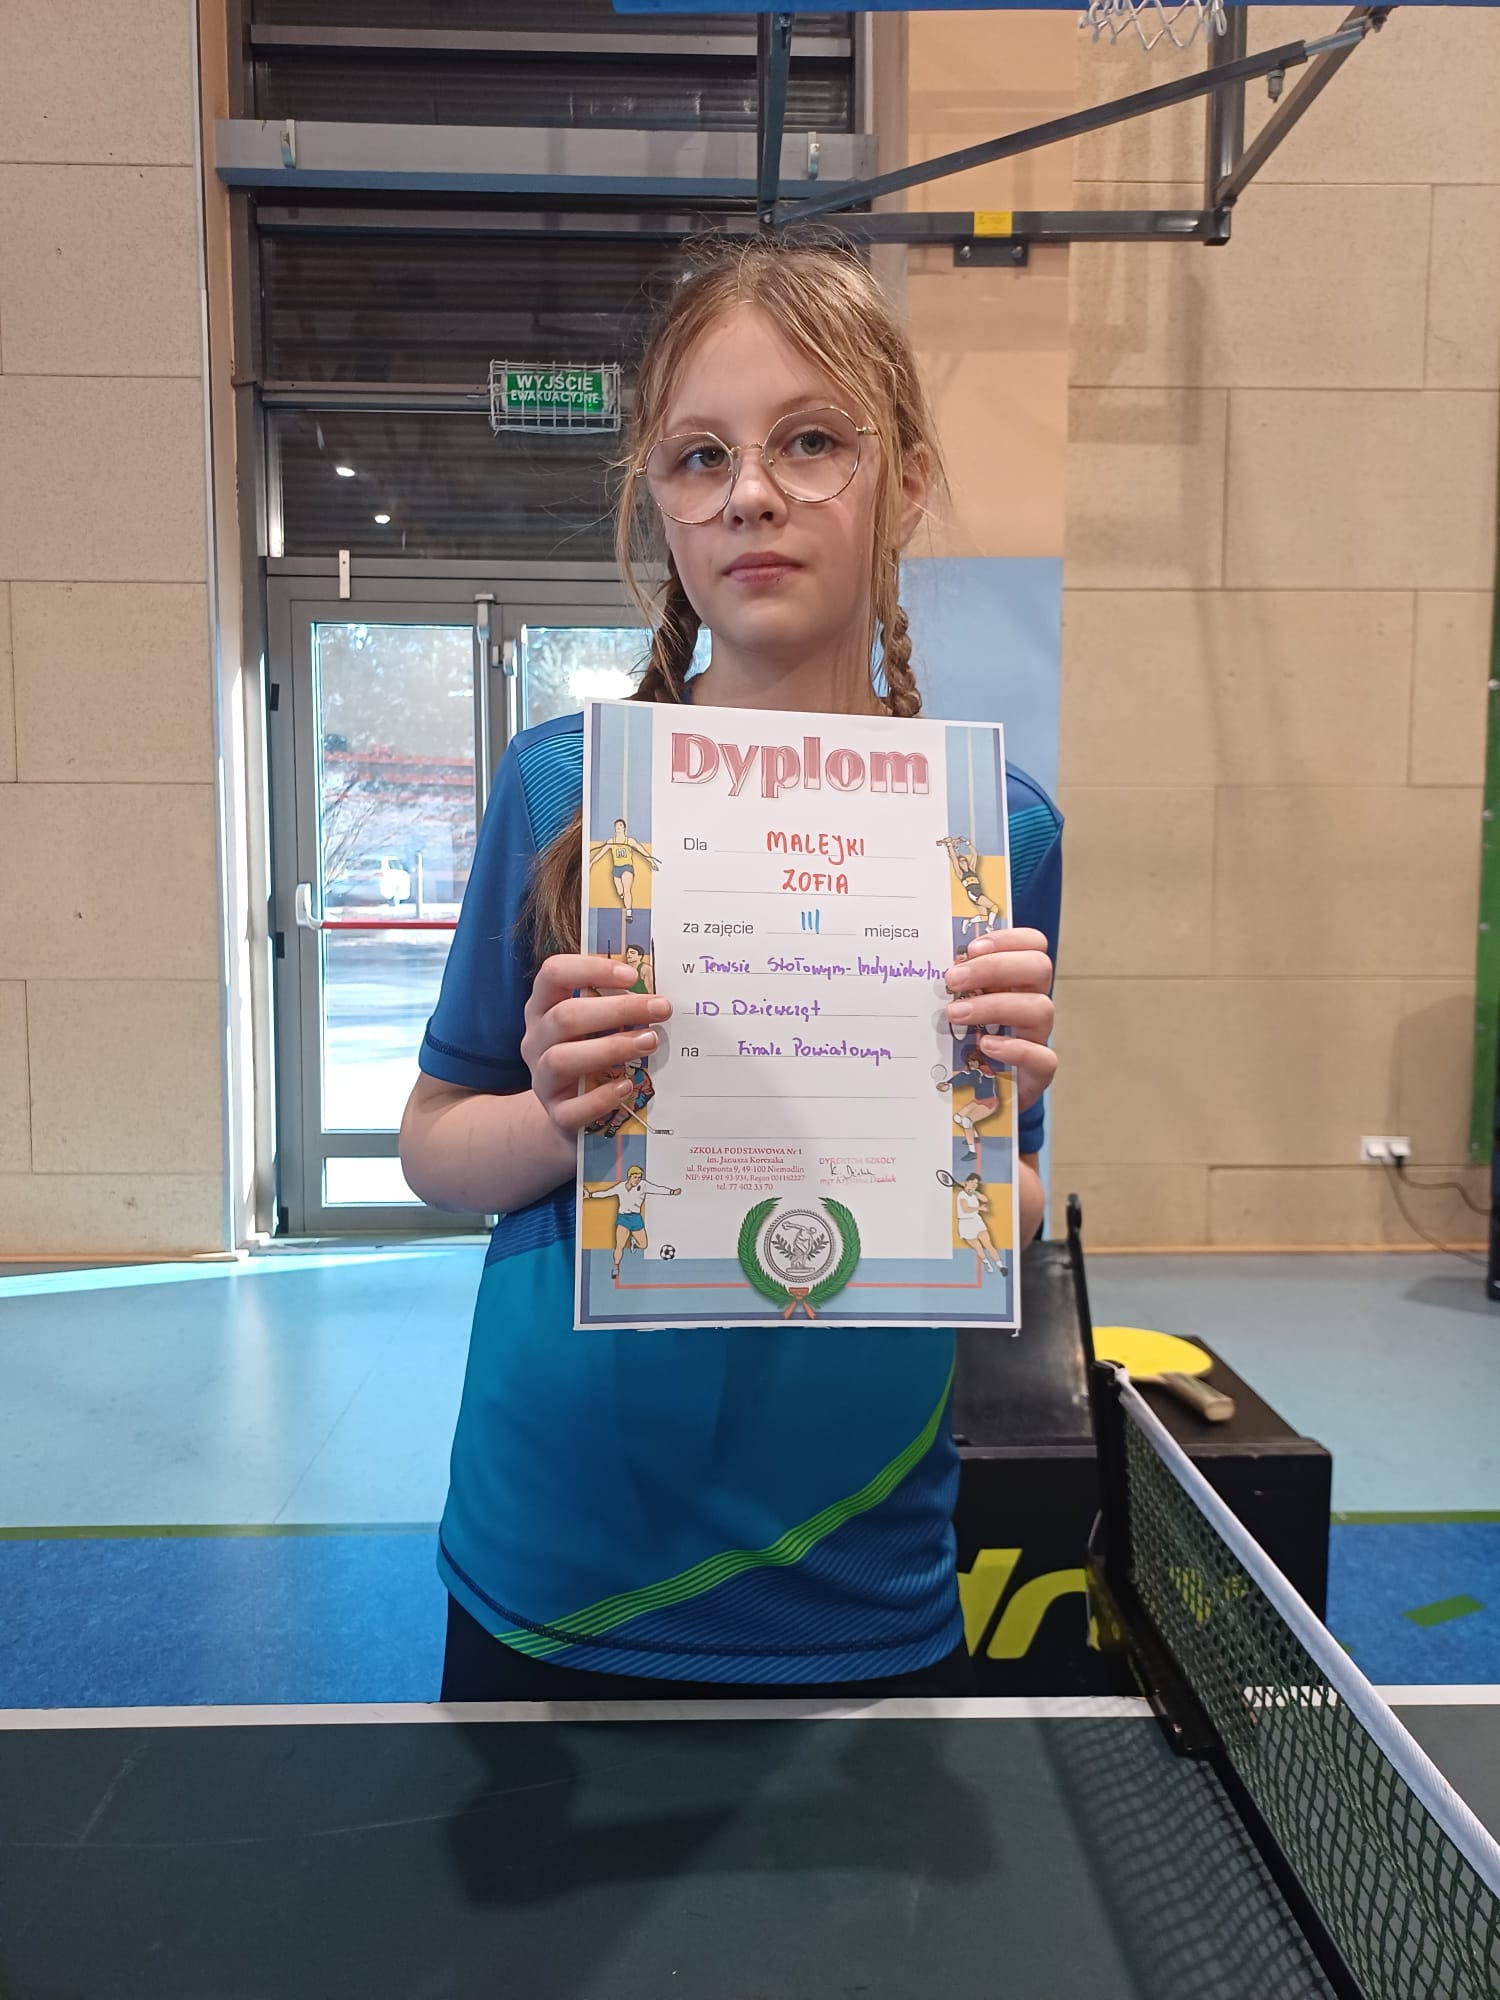 WYJŚCIE
EWAKUACYJNE
Dyplom
Dla MALEJKI
ZOFIA
za zajęcie III miejsca
w Tenisie Stołowym-Indywidualnym
ID Dziewcząt
na Finale Powiatowym
SZKOŁA PODSTAWOWA Nr 1
im. Janusza Korczaka
ul. Reymonta 9, 49-100 Niemodlin
NIP: 991-01-93-934, Regon 001182227
tel. 77 402 33 70
DYREKTOR SZKOŁY
mgr Krystyna